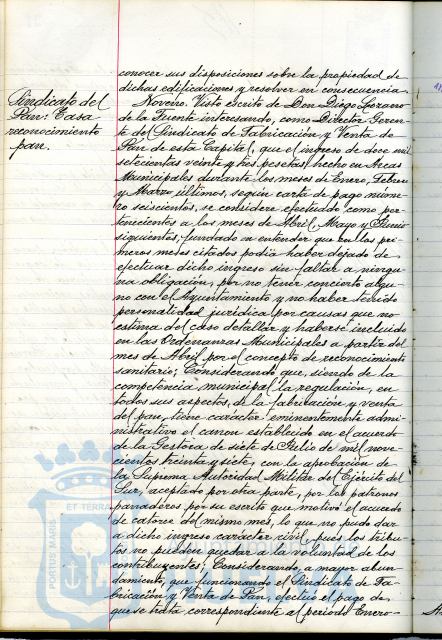 Sindicato del
Pan: Tasa
reconocimiento
pan.
conocer sus disposiciones sobre la propiedad de
dichas edificaciones y resolver en consecuencia.
Noveno. Visto escrito de Don Diego Lozano
de la Fuente interesando, como Director Geren-
te del Sindicato de Fabricación y Venta de
Pan de esta Capital, que el ingreso de doce mil
setecientas veinte y tres pesetas, hecho en Arcas
Municipales durante los meses de Enero, Febrero
y Marzo últimos, según carta de pago núme-
ro seiscientos, se considere efectuado como per-
tenecientes a los meses de Abril, Mayo y Junio
siguientes; fundado en entender que en los pri-
meros meses citados podía haber dejado de
efectuar dicho ingreso sin faltar a ningu-
na obligación, por no tener concierto algu-
no con el Ayuntamiento y no haber tenido
personalidad jurídica por causas que no
estima del caso detallar y haberse incluido
en las Ordenanzas Municipales a partir del
mes de Abril por el concepto de reconocimiento
sanitario; Considerando que, siendo de la
competencia municipal la regulación, en
todos sus aspectos, de la fabricación y venta
del pan, tiene carácter eminentemente admi-
nistrativo el canon establecido en el acuerdo
de la Gestora de siete de Julio de mil nove-
cientos treinta y siete, con la aprobación de
la Suprema Autoridad Militar del Ejército del
Sur, aceptado por otra parte, por los patronos
panaderos por su escrito que motivó el acuerdo
de catorce del mismo mes, lo que no pudo dar
a dicho ingreso carácter civil, pues los tribu-
tos no pueden quedar a la voluntad de los
contribuyentes; Considerando, a mayor abun-
damiento, que funcionando el Sindicato de Fa-
bricación y Venta de Pan, efectuó el pago de
que se trata correspondiente al período Enero-
PORTUS MARIS
ET TERRA